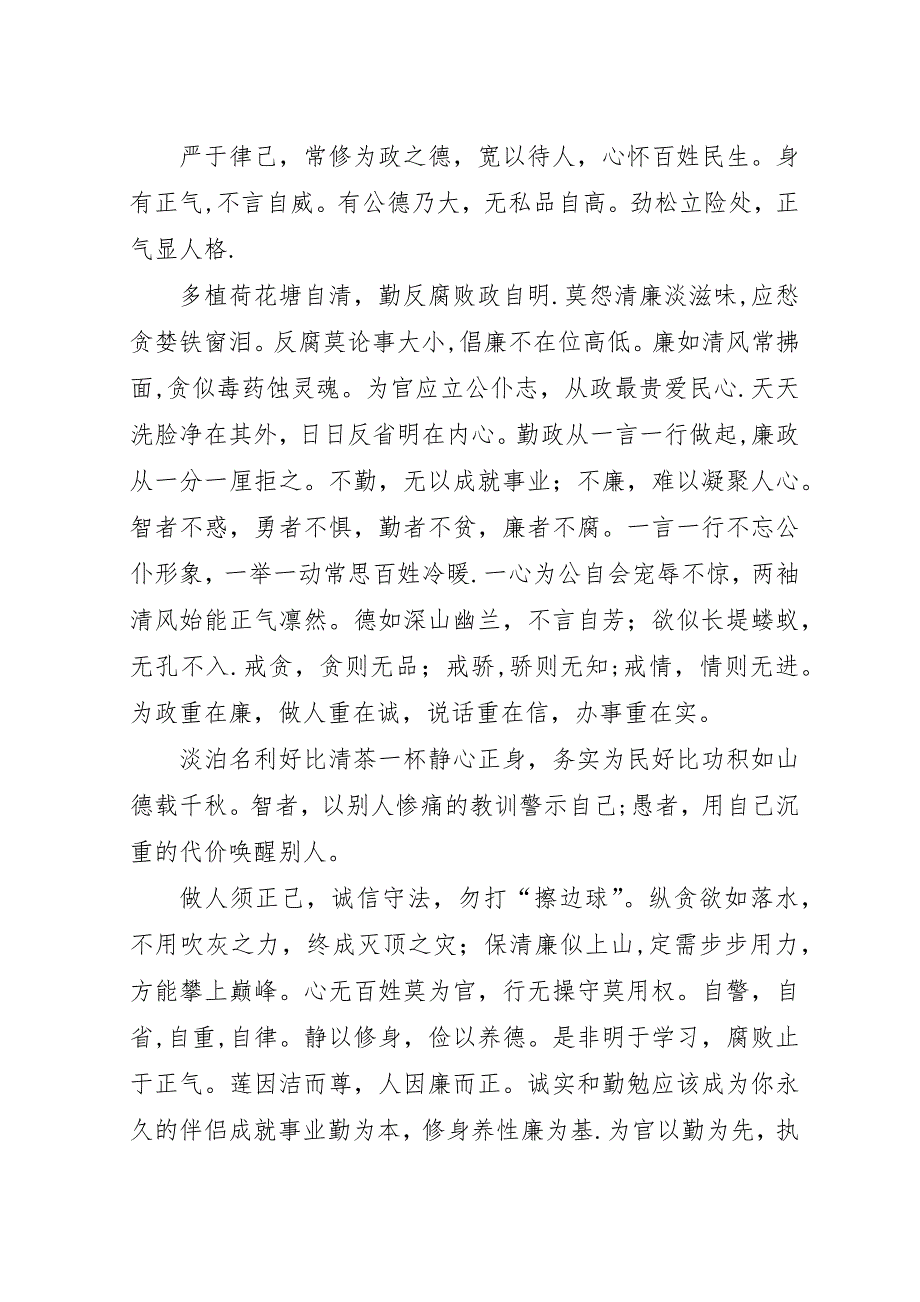 严于律己，常修为政之德，宽以待人，心怀百姓民生。身
有正气,不言自威。有公德乃大，无私品自高。劲松立险处，正
气显人格.
多植荷花塘自清，勤反腐败政自明.莫怨清廉淡滋味,应愁
贪婪铁窗泪。反腐莫论事大小,倡廉不在位高低。廉如清风常拂
面,贪似毒药蚀灵魂。为官应立公仆志，从政最贵爱民心.天天
洗脸净在其外，日日反省明在内心。勤政从一言一行做起,廉政
从一分一厘拒之。不勤，无以成就事业；不廉，难以凝聚人心。
智者不惑，勇者不惧，勤者不贫，廉者不腐。一言一行不忘公
仆形象，一举一动常思百姓冷暖.一心为公自会宠辱不惊，两袖
清风始能正气凛然。德如深山幽兰，不言自芳；欲似长堤蝼蚁，
无孔不入.戒贪，贪则无品；戒骄,骄则无知;戒情，情则无进。
为政重在廉，做人重在诚，说话重在信，办事重在实。
淡泊名利好比清茶一杯静心正身，务实为民好比功积如山
德载千秋。智者，以别人惨痛的教训警示自己;愚者，用自己沉
重的代价唤醒别人。
做人须正己，诚信守法，勿打“擦边球”。纵贪欲如落水，
不用吹灰之力，终成灭顶之灾；保清廉似上山,定需步步用力，
方能攀上巅峰。心无百姓莫为官，行无操守莫用权。自警，自
省,自重,自律。静以修身，俭以养德。是非明于学习，腐败止
于正气。莲因洁而尊，人因廉而正。诚实和勤勉应该成为你永
久的伴侣成就事业勤为本，修身养性廉为基.为官以勤为先，执